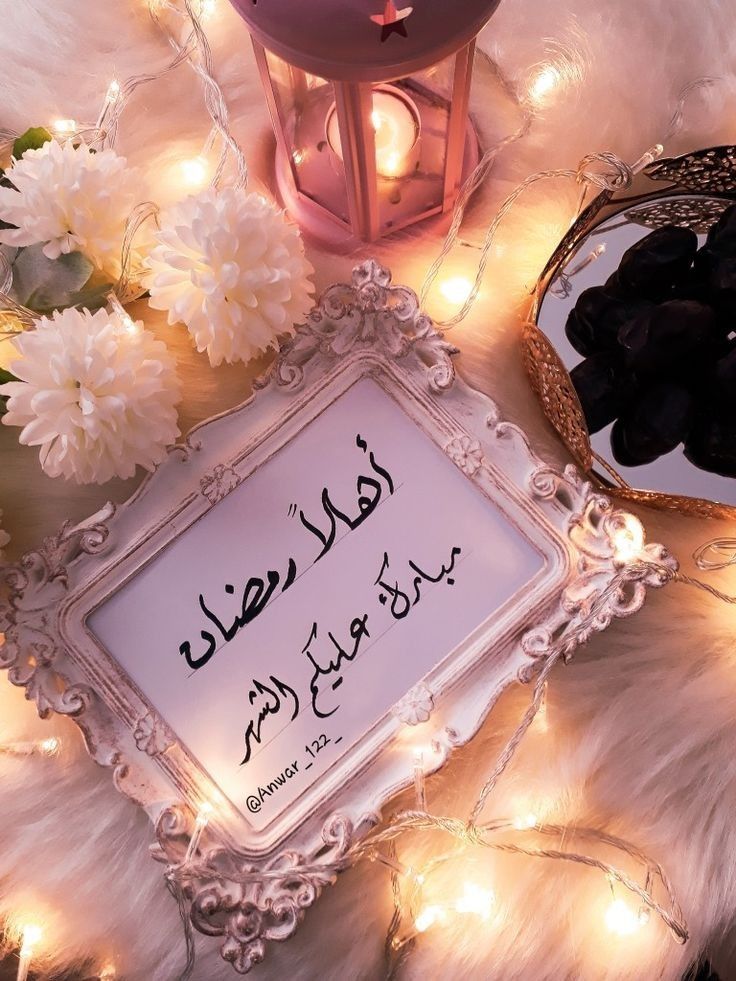 أهلاً رمضان
مبارك عليكم الشهر
@Anwar_122_